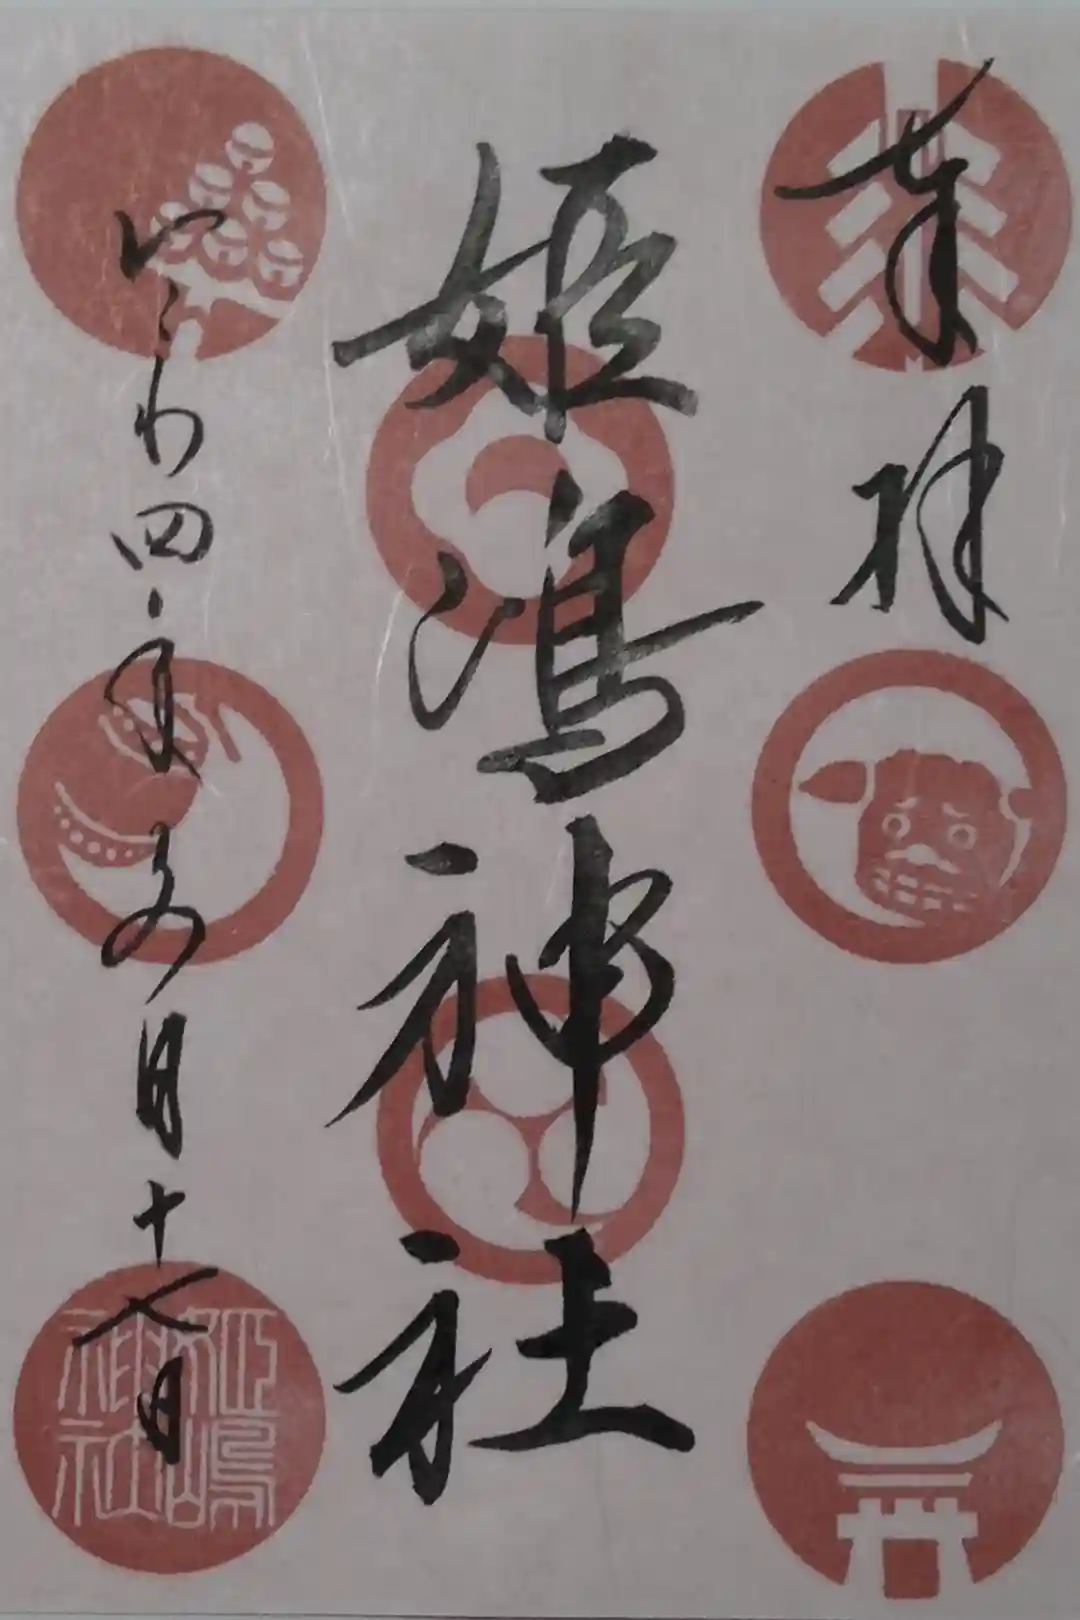 奉拝
姫嶋神社
令和四年五月十七日
姫嶋神社